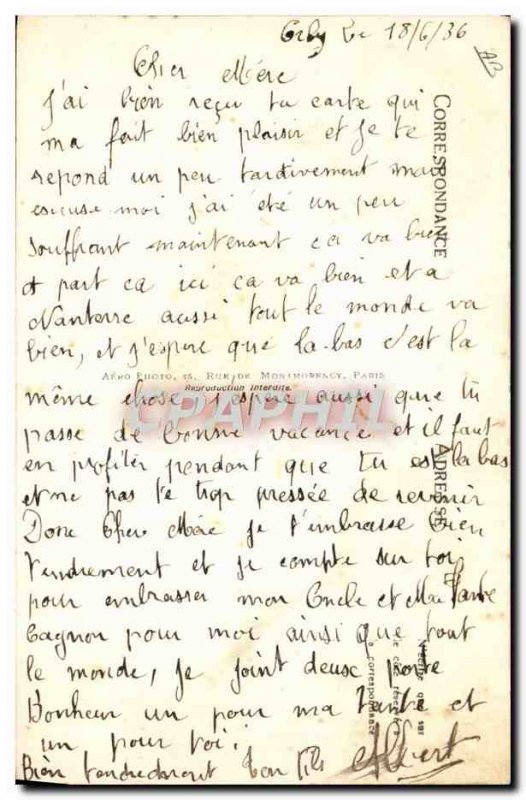 Orly Le 18/6/36
AB
Cher Mére
J'ai bien reçu ta carte qui
ma fait bien plaisir et Je te
repond un peu tardivement mais
escuse moi j'ai été un peu
souffrant maintenant ca va bien
a part ca ici ca va bien et a
Nanterre aussi tout le monde va
bien, et j'espere que la-bas c'est la
AÉRO PHOTO, 35, RUE DE MONTMORENCY, PARIS
Reproduction Interdite.
même chose j'espere aussi que tu
passe de bonne vacance et il faut
en profiter pendant que tu es la bas
et ne pas te trop pressée de revenir
Donc Cher Mére je t'embrasse bien
Tendrement et je compte sur toi
pour embrasser mon Oncle et Ma Tante
Gagnon pour moi ainsi que tout
le monde, Je joint deuse porte
Bonheur un pour ma Tante et
un pour toi!
Bien tendrement ton fils Albert
CORRESPONDANCE
ADRESSE
N'écrire que sur
le côté réservé à
la correspondance
CPAPHIL